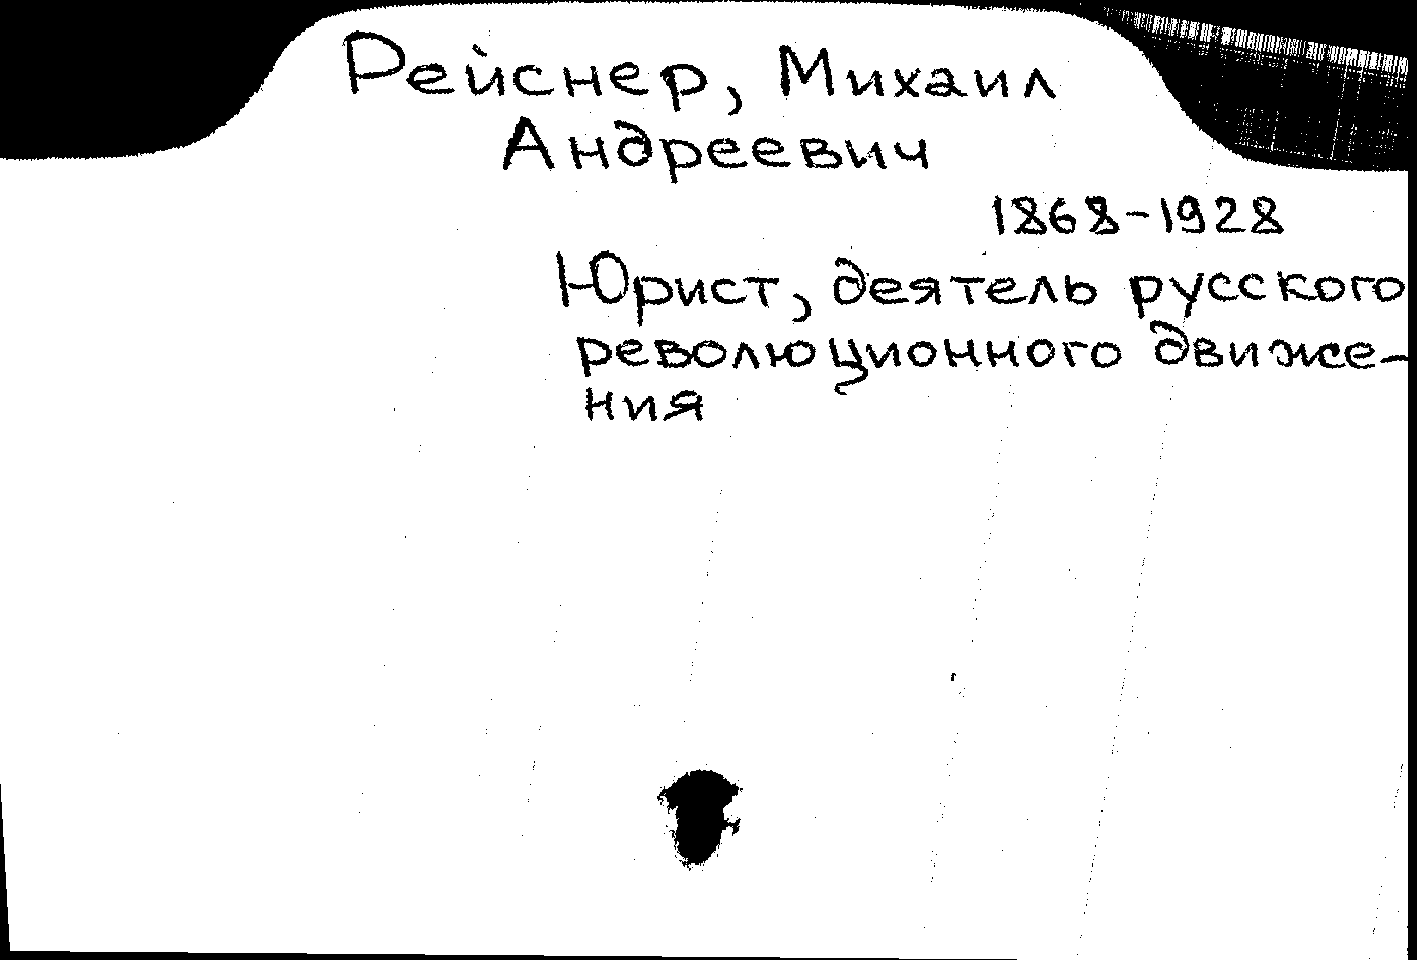 Рейснер, Михаил
Андреевич
1868-1928
Юрист, деятель русского
революционного движе-
ния